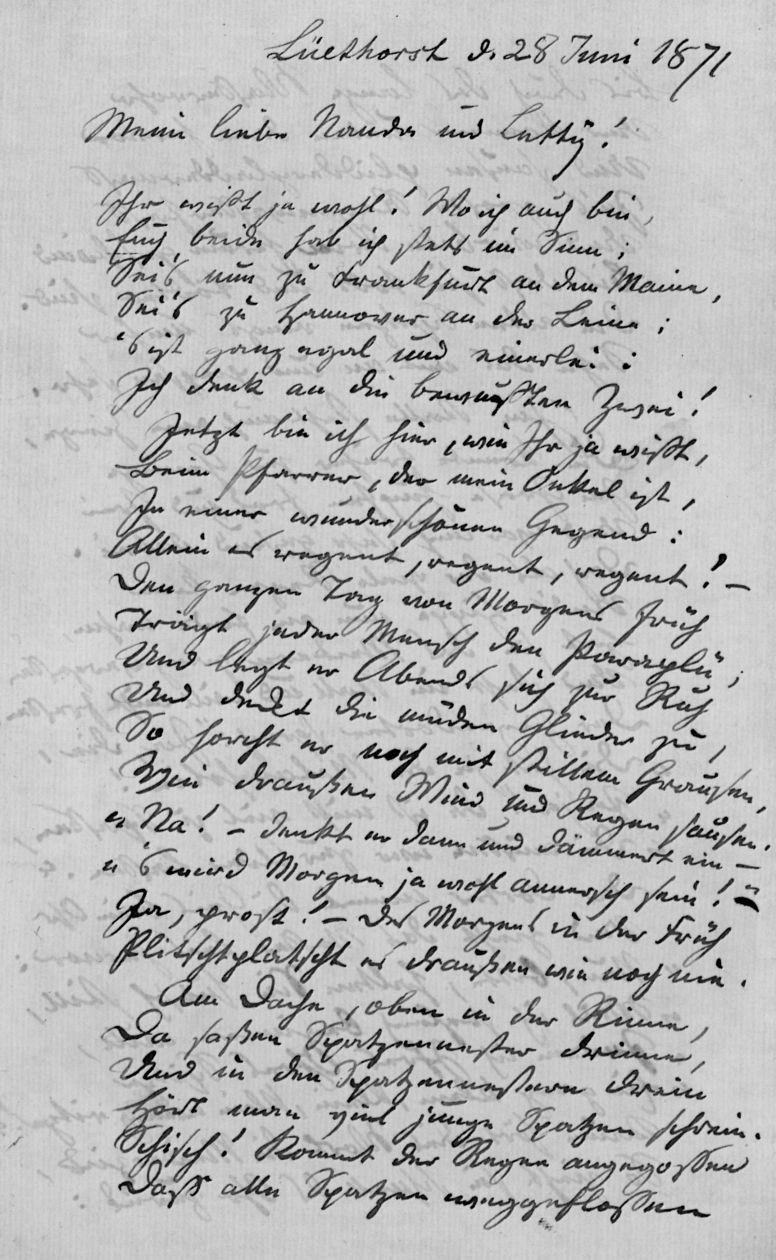 Lüethorst d. 28 Juni 1871
Meine liebe Nanda und Letty!
Ihr wißt ja wohl! Wo ich auch bin,
Euch beide hab ich stets im Sinn;
Sei's nun zu Frankfurt an dem Maine,
Sei's zu Hannover an der Leine;
's ist ganz egal und einerlei:
Ich denk an die bewußten Zwei!
Jetzt bin ich hier, wie Ihr ja wißt,
Beim Pfarrer, der mein Onkel ist,
In einer wunderschönen Gegend:
Allein es regent, regent, regent! –
Den ganzen Tag von Morgens früh
Trägt jeder Mensch den Paraplü;
Und legt er Abends sich zur Ruh
Und deckt die müden Glieder zu,
So horcht er noch mit stillem Grausen,
Wie draußen Wind und Regen sausen.
"Na! – denkt er dann und dämmert ein –
"'s wird Morgen ja wohl annersch sein!" –
Ja, prost! – Des Morgens in der Früh
Plitschtplatscht es draußen wie noch nie.
Am Dache, oben in der Rinne,
Da saßen Spatzennester drinne,
Und in den Spatzennestern drein
Hört man viel junge Spatzen schrein.
Schisch! Kommt der Regen angegossen
Daß alle Spatzen weggeflossen